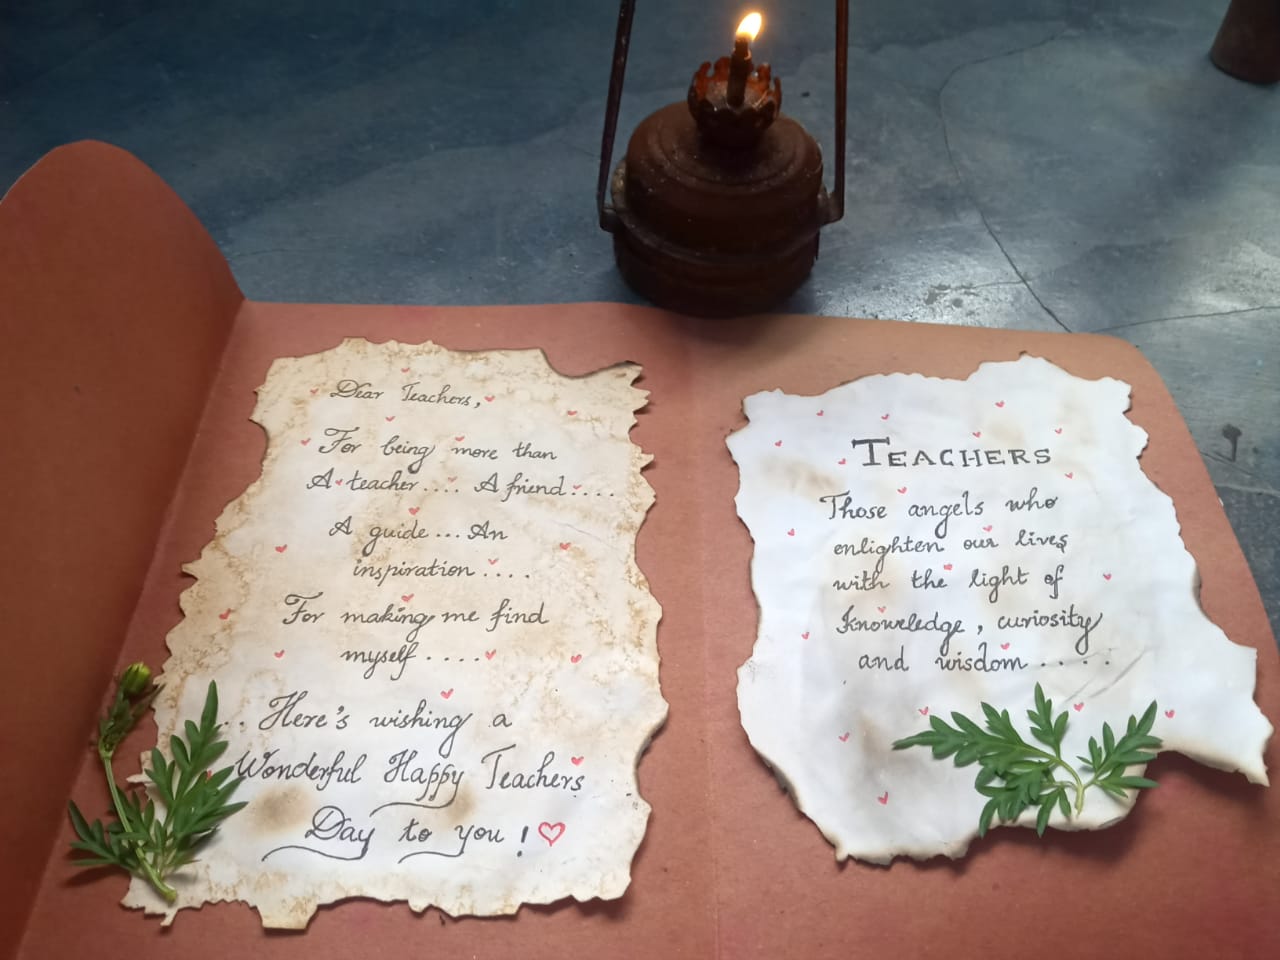 Dear Teachers,
For being more than
A teacher.... A friend....
A guide... An
inspiration....
For making me find
myself....
.. Here's wishing a
Wonderful Happy Teachers
Day to you!
TEACHERS
Those angels who
enlighten our lives
with the light of
Knowledge, curiosity
and wisdom....